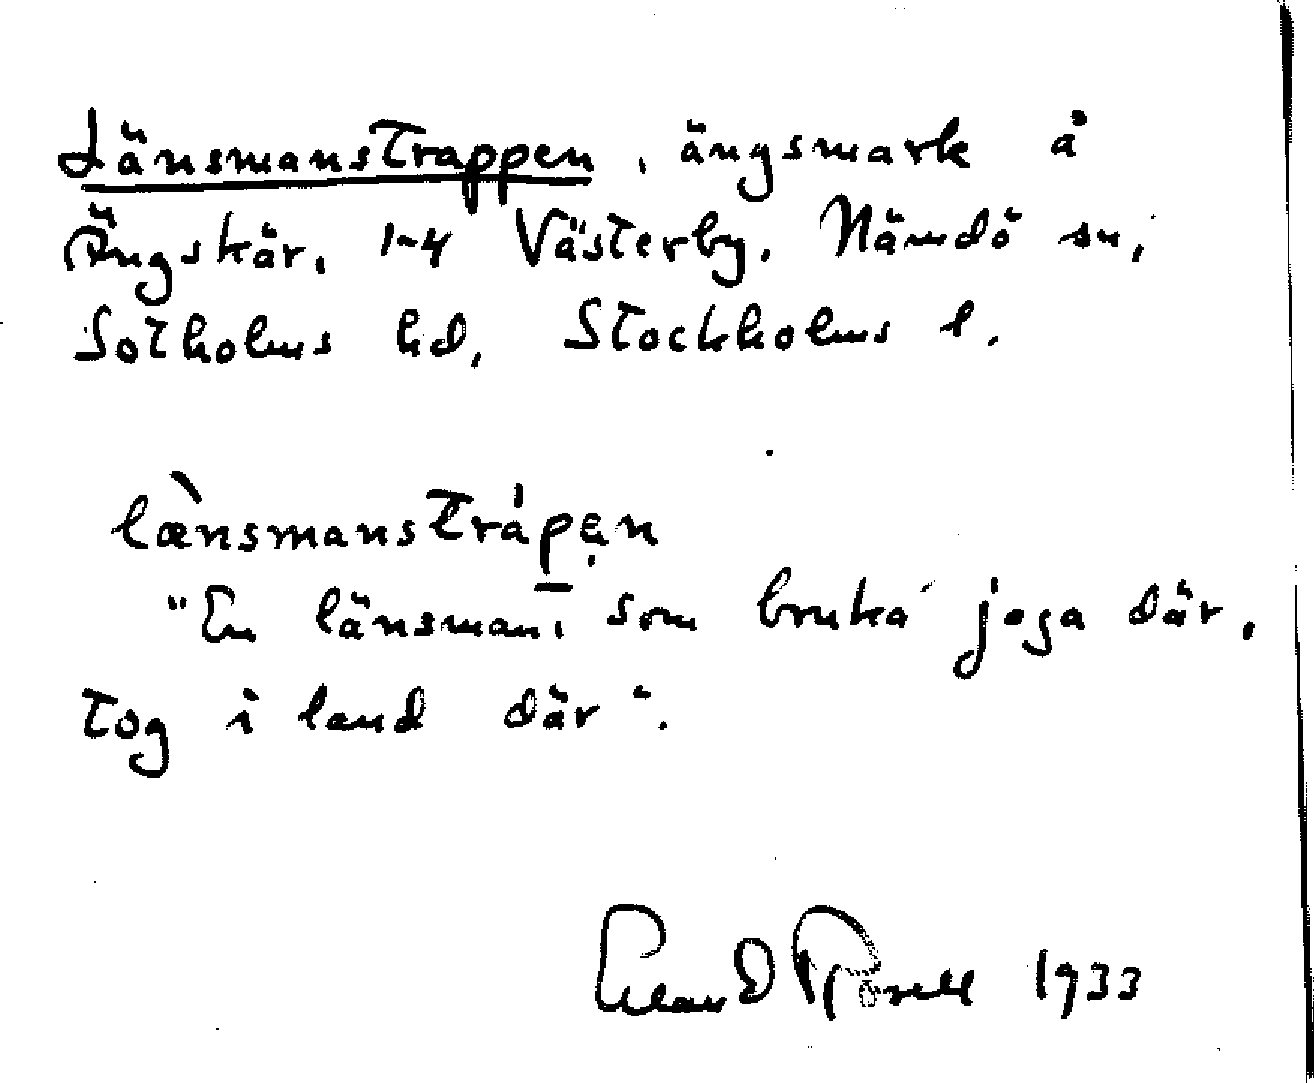 Länsmanstrappen, ängsmark å
Ängskär, 1-4 Västerby, Nämdö sn,
Sotholms hd, Stockholms l.
lænsmanstrápen
"En länsman, som bruka' jaga där,
tog i land där".
1933